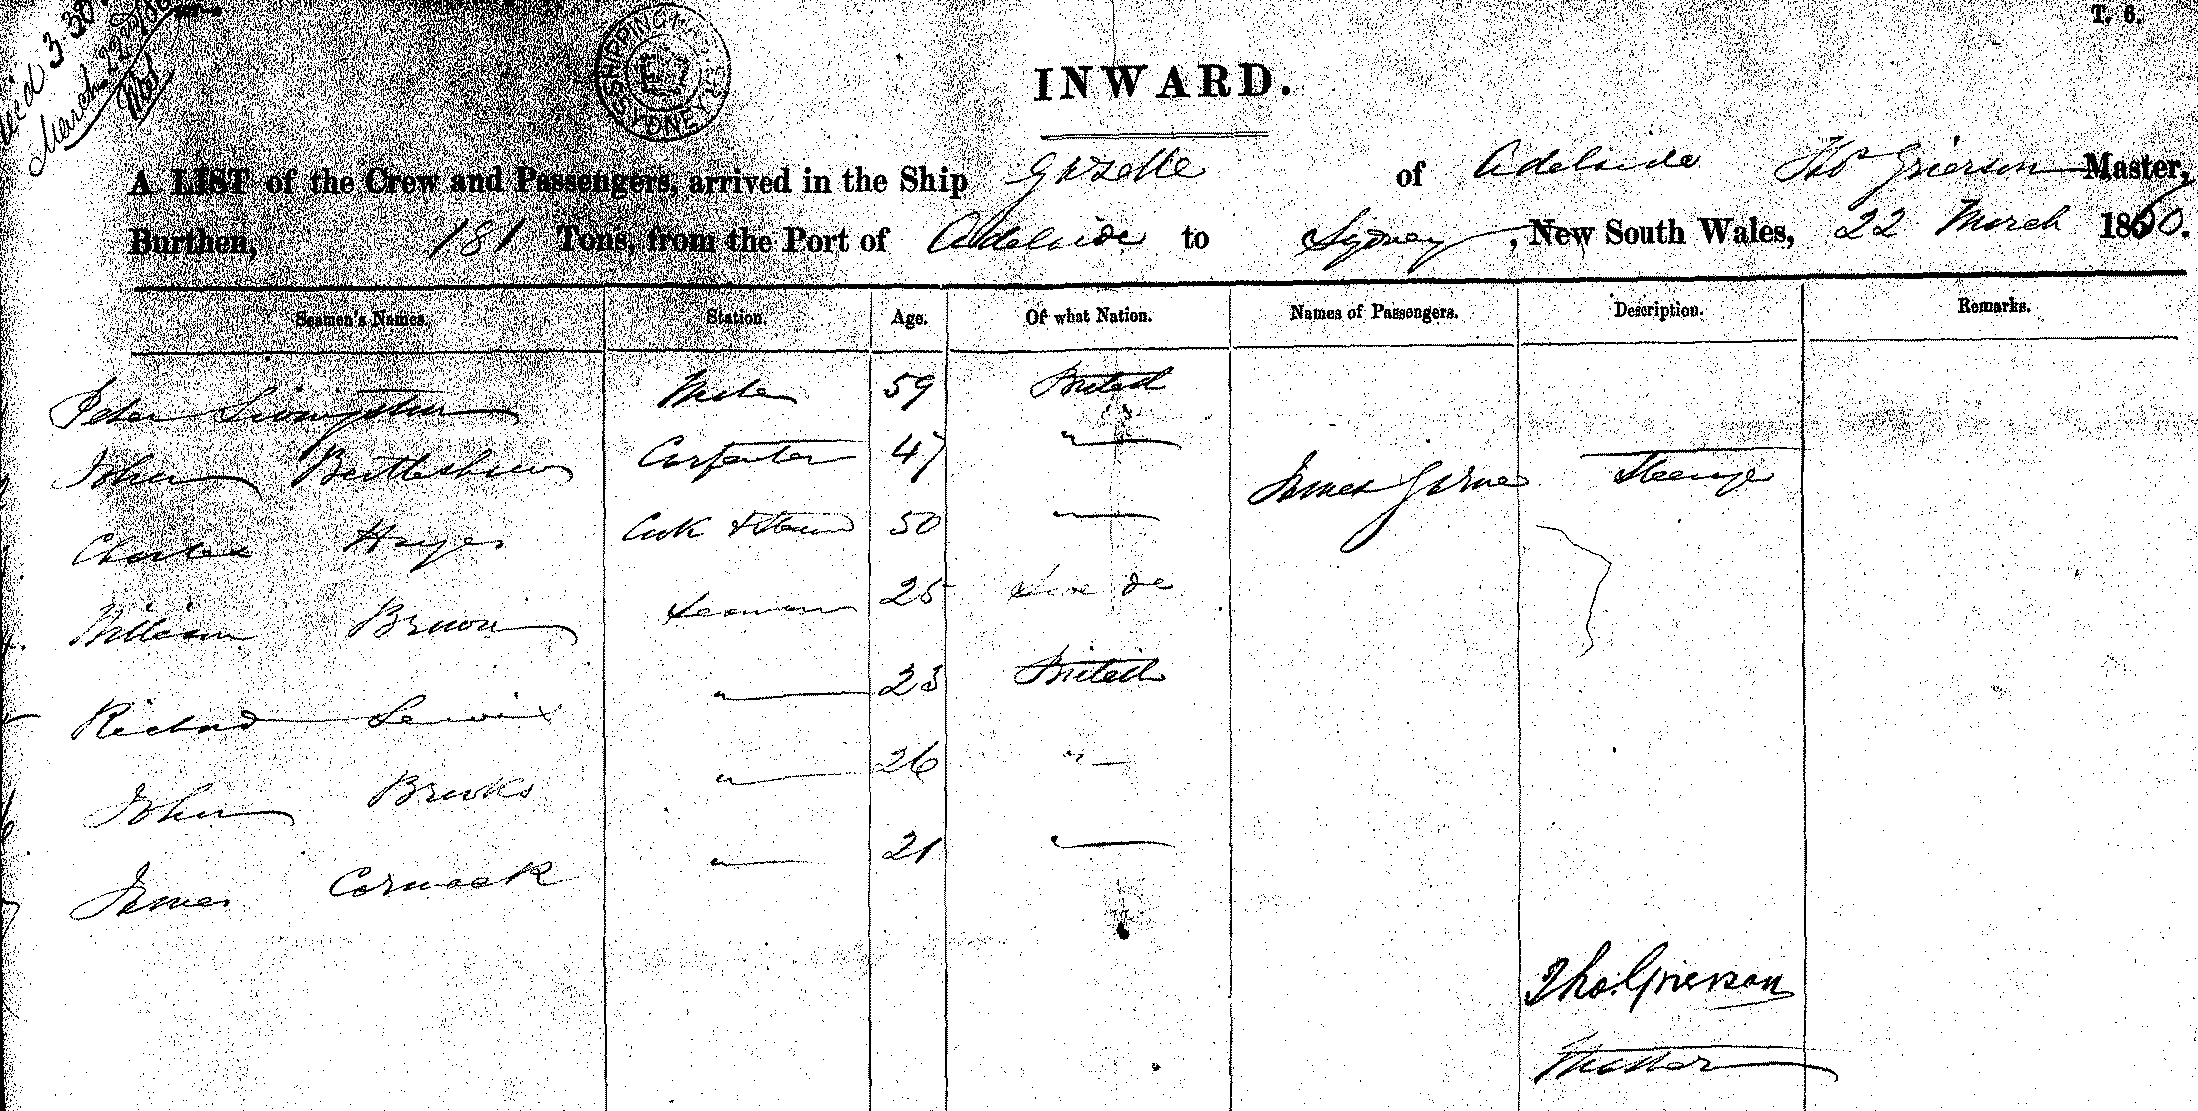 T. 6.
March 22nd
SHIPPING MASTER SYDNEY
INWARD.
A LIST of the Crew and Passengers, arrived in the Ship Gazelle of Adelaide Thos Grierson Master,
Burthen, 181 Tons, from the Port of Adelaide to Sydney, New South Wales, 22 March 1860.
Seamen's Names. Station. Age. Of what Nation. Names of Passengers. Description. Remarks.
Peter Livingston Mate 59 British
John Carpenter 47 "
James Steerage
Charles Hayes Cook & Stewd 50 "
William Brown Seaman 25
Richard Lewis " 23 British
John Brooks " 26 "
James Cormack " 21 "
Tho. Grierson
Master